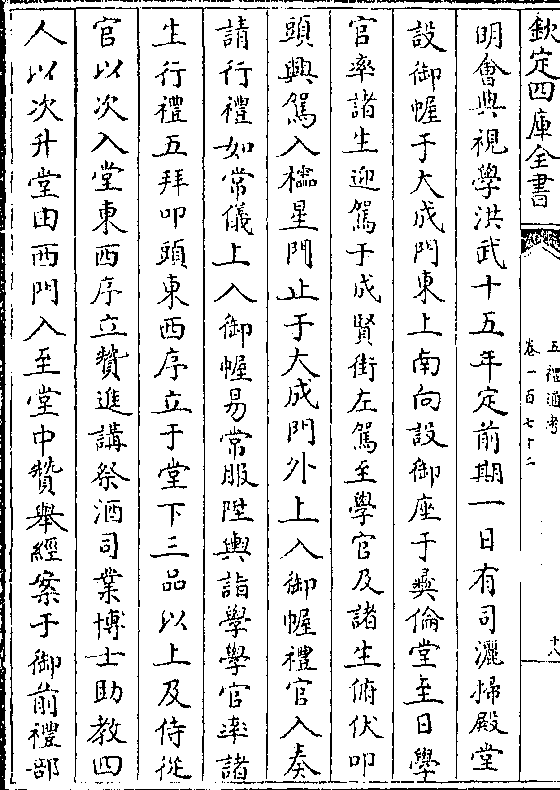 欽定四庫全書
五禮通考
卷一百七十二
十八
明會典視學洪武十五年定前期一日有司灑掃殿堂
設御幄于大成門東上南向設御座于彛倫堂至日學
官率諸生迎駕于成賢街左駕至學官及諸生俯伏叩
頭興駕入櫺星門止于大成門外上入御幄禮官入奏
請行禮如常儀上入御幄易常服陞輿詣學學官率諸
生行禮五拜叩頭東西序立于堂下三品以上及侍從
官以次入堂東西序立贊進講祭酒司業博士助教四
人以次升堂由西門入至堂中贊舉經案于御前禮部